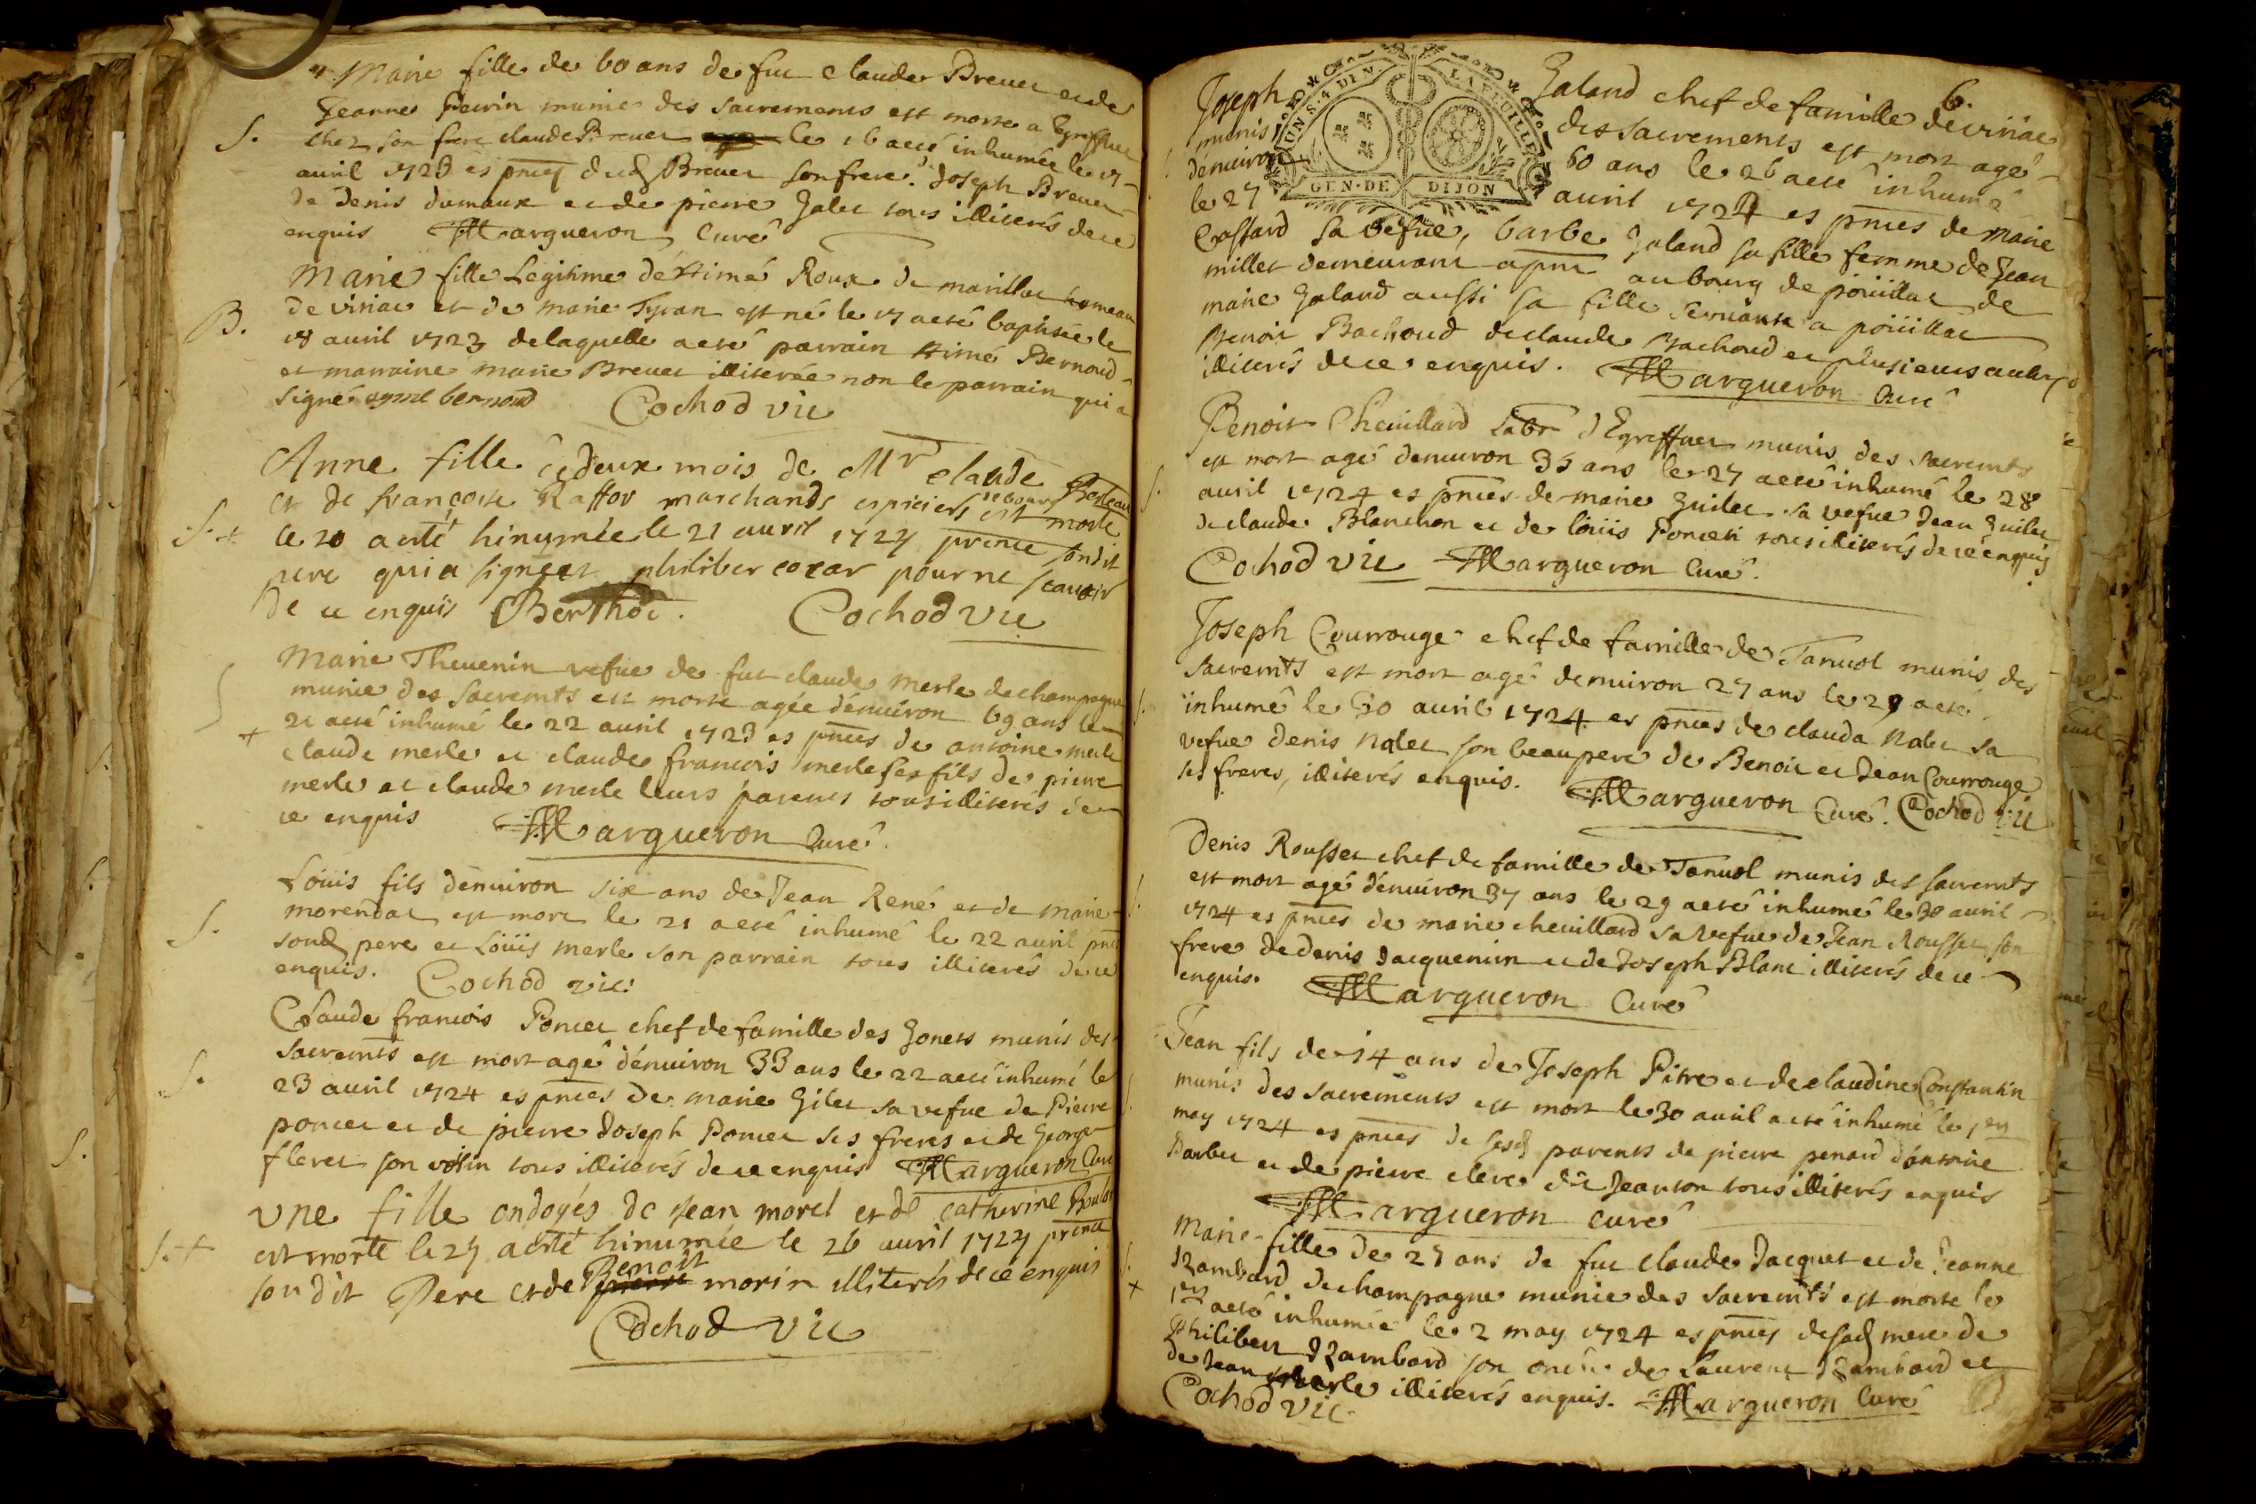 Marie fille de 60 ans de fue Claude Brevet et de
Jeanne Perrin munie des sacrements est morte a
chez son frere claude Brevet le 16 aeté inhumée le 17
avril 1723 es pnces dud Brevet son frere. Joseph Brevet
de Denis dumaux et de pierre Galet tous illiterés de ce
enquis Margueron Curé
S.
Marie fille Legitime d'Aimé Roux de marillac hameau
de viriac et de marie Tyran est né le 17 aeté baptisée le
18 avril 1723 de laquelle aeté parrain Aimé Bernoud
et marraine marie Brevet illiterée non le parrain qui a
signé aymé bernoud Cochod vic
B.
Anne fille de deux mois de Mr claude
et de françoise Raffor marchands espiciers est morte
le 20 aeté hinumée le 21 avril 1724 prence sondit
pere qui a signé et philiber cocar pour ne scavoir
de ce enquis Berthod. Cochod vic
S. +
Marie Thevenin vefue de fut claude merle de champagne
munie des sacremts est morte agée d'enuiron 69 ans le
21 aeté inhumé le 22 avril 1723 es pnces de antoine merle
claude merle et claude francois merle ses fils de pierre
merle et claude merle leurs parents tous illiterés de
ce enquis Margueron Curé
S +
Loüis fils d'enuiron six ans de Jean René et de marie
morendat est mort le 21 aeté inhumé le 22 avril
sond pere et Loüis merle son parrain tous illiterés de ce
enquis. Cochod vic:
S.
Claude francois Poncet chef de famille des Gonets munis des
sacremts est mort agé d'enuiron 33 ans le 22 aeté inhumé le
23 avril 1724 es pnces de marie Gilet sa vefue de Pierre
poncet et de pierre Joseph Poncet ses freres et de George
fleret son voisin tous illiterés de ce enquis Margueron Curé
S.
une fille ondoyés de jean morel et de catherine
est morte le 25 aeté hinumée le 26 avril 1724 prence
son dit Pere et de Benoit morin illiterés de ce enquis
Cochod vic
S. +
6.
GEN·DE DIJON
Joseph Galand chef de famille de viriac
munis des sacrements est mort agé
denuiron 60 ans le 26 aeté inhumé
le 27 avril 1724 es pnces de marie
Cassard sa vefue, barbe Galand sa fille femme de Jean
millet demeurant apnt au bourg de poüillat de
marie Galand aussi sa fille servante a poüillat
Benoit Bachoud de claude Bachoud et plusieurs autres
illiterés de ce enquis. Margueron Curé
Benoit Chevillard Labr d'Egreffuet munis des sacremts
est mort agé denuiron 35 ans le 27 aeté inhumé le 28
avril 1724 es pnces de marie Guilet sa vefue Jean Guilet
de claude Blanchon et de loüis Poncet tous illiterés de ce enquis
Cochod vic Margueron Curé.
Joseph Courrouge chef de famille de Tanuol munis des
sacremts est mort agé denuiron 27 ans le 29 aeté
inhumé le 30 avril 1724 es pnces de clauda Nalet sa
vefue Denis Nalet son beaupere de Benoit et Jean Courrouge
ses freres, illiterés enquis. Margueron Curé. Cochod vic
Denis Rousset chef de famille de Tanuol munis des sacremts
est mort agé d'enuiron 37 ans le 29 aeté inhumé le 30 avril
1724 es pnces de marie chevillard sa vefue de Jean Rousset son
frere de denis Jacquemin et de Joseph Blanc illiterés de ce
enquis. Margueron Curé
Jean fils de 14 ans de Joseph Pitre et de claudine Constantin
munis des sacrements est mort le 30 avril aeté inhumé le 1er
may 1724 es pnces de sesd parents de pierre penard d'antoine
Barbet et de pierre clerc dit Jeanton tous illiterés enquis
Margueron curé
Marie fille de 27 ans de fue claude Jacquet et de Jeanne
Rambard de champagne munie des sacremts est morte le
1er aeté inhumée le 2 may 1724 es pnces de sad mere de
Philibert Rambard son oncle de Laurent Rambard et
de Jean merle illiterés enquis. Margueron Curé
Cochod vic